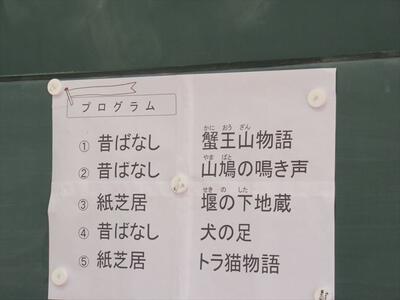 プログラム
① 昔ばなし 蟹王山物語
② 昔ばなし 山鳩の鳴き声
③ 紙芝居 堰の下地蔵
④ 昔ばなし 犬の足
⑤ 紙芝居 トラ猫物語